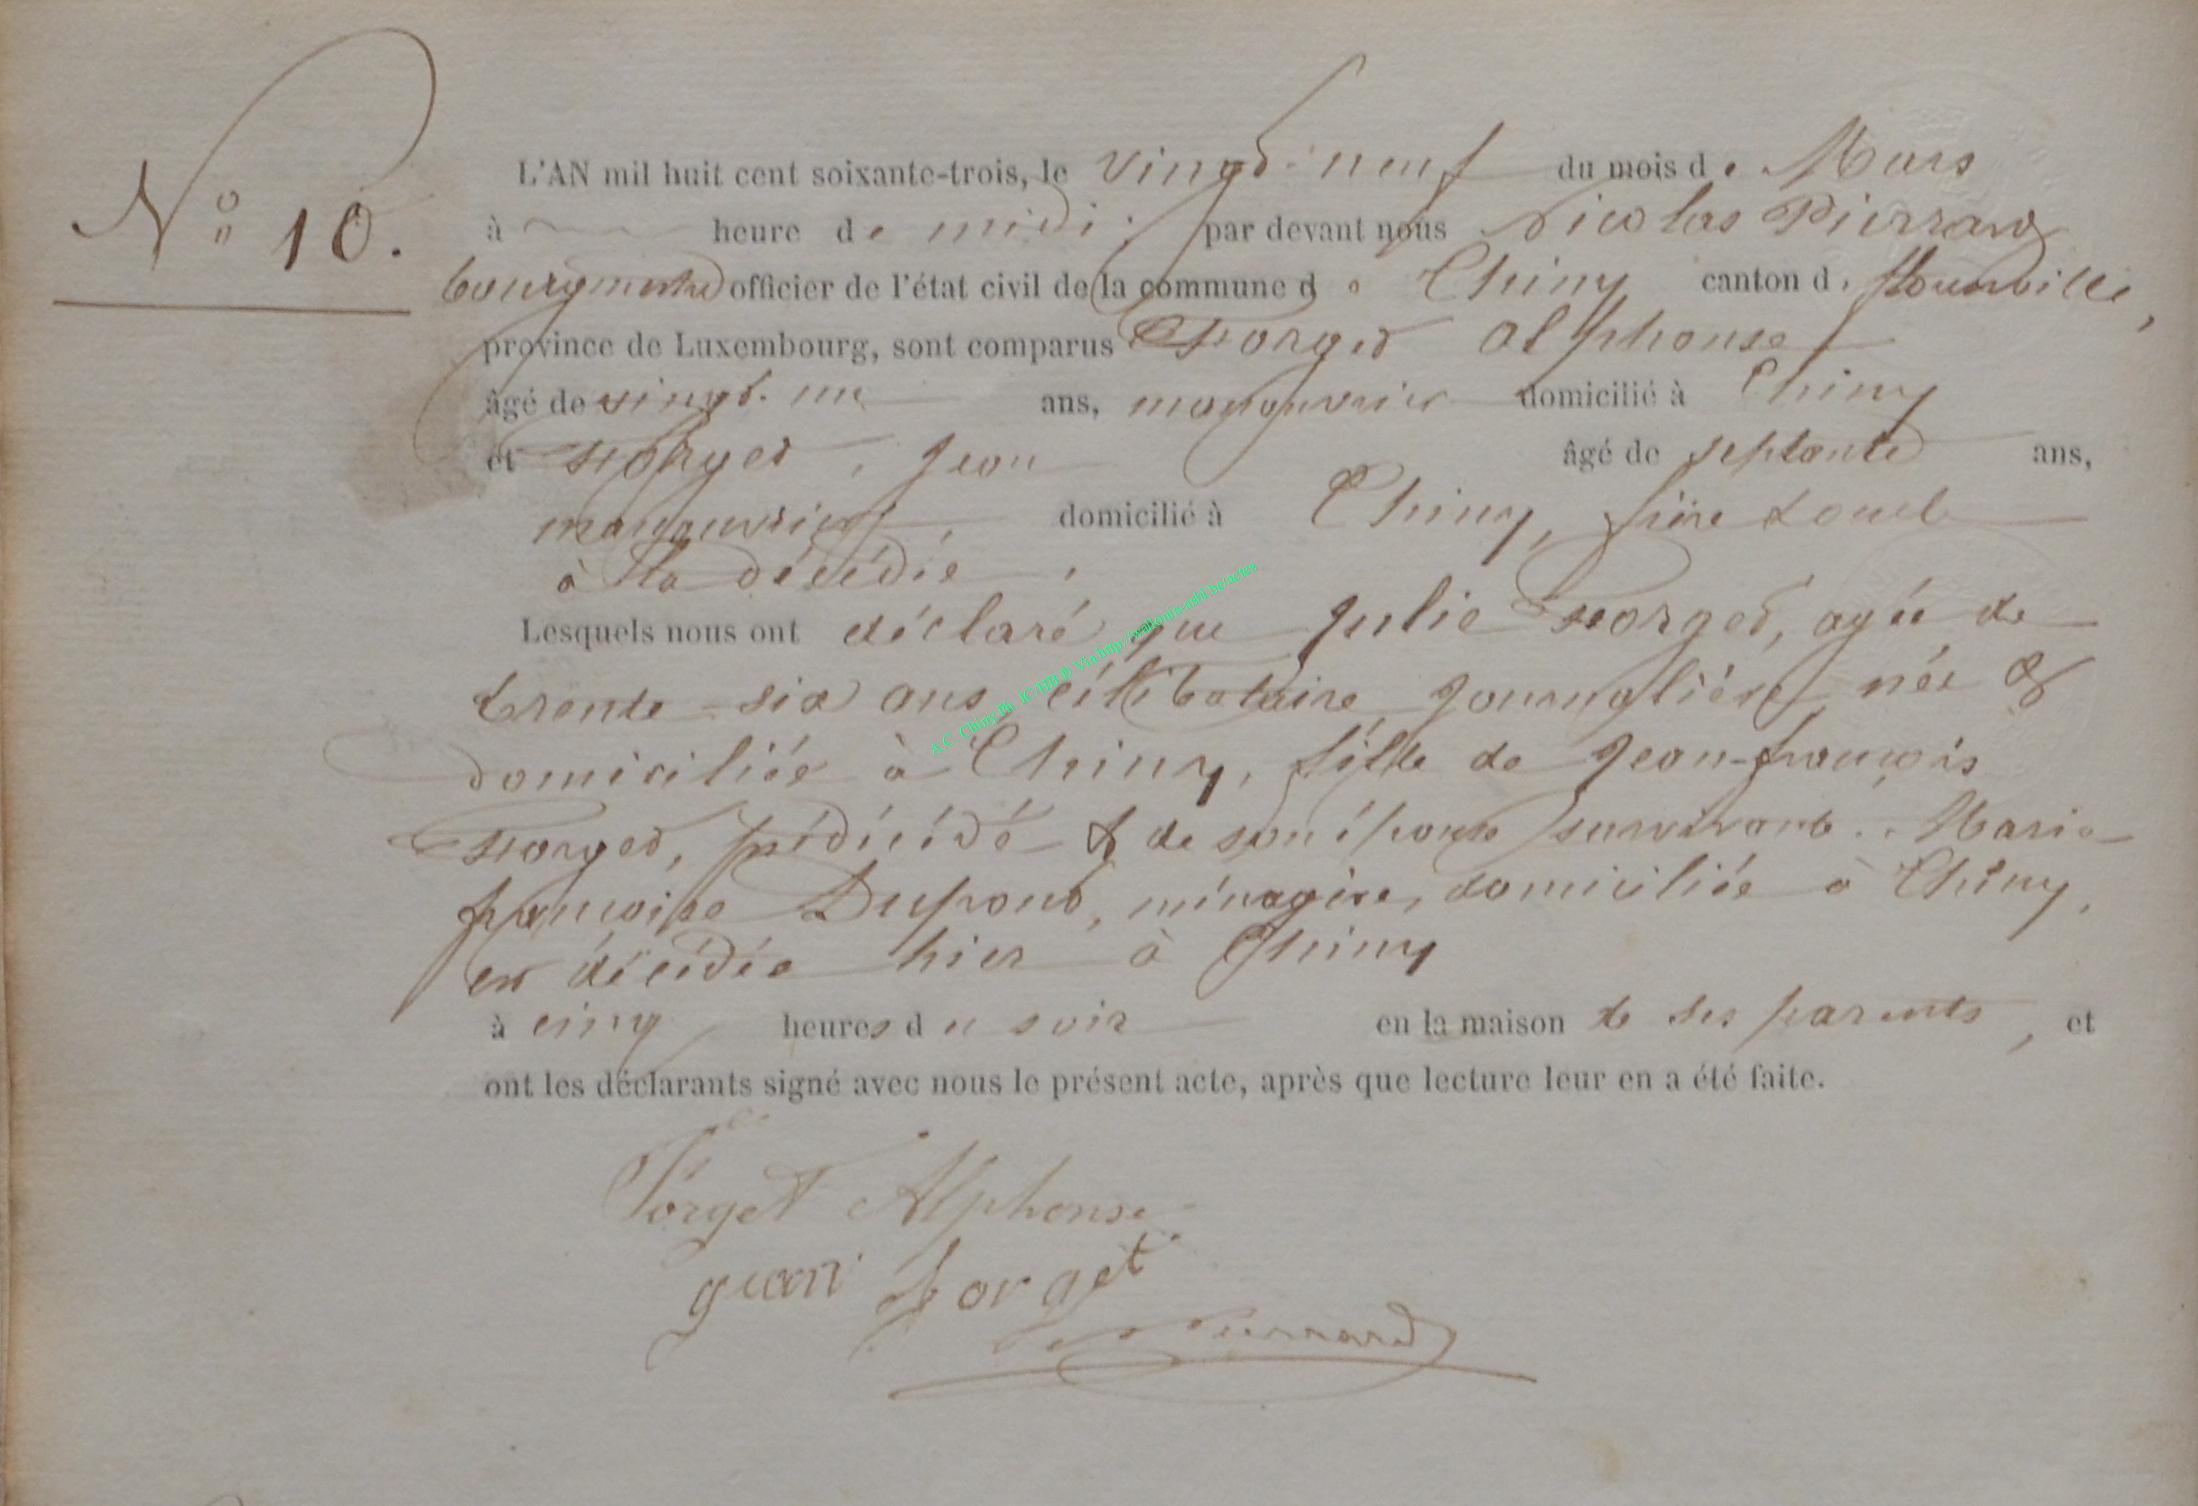 N° 10.
L'AN mil huit cent soixante-trois, le vingt-neuf du mois de Mars
à heure de midi, par devant nous Nicolas Pierrard
bourgmestre officier de l'état civil de la commune de Chiny canton de Florenville,
province de Luxembourg, sont comparus Forget Alphonse
âgé de vingt-un ans, manouvrier domicilié à Chiny
et Forget, Jean âgé de septante ans,
manouvrier, domicilié à Chiny, frère & oncle
à la décédée,
Lesquels nous ont déclaré que Julie Forget, agée de
trente-six ans célibataire journalière, née &
domiciliée à Chiny, fille de Jean-françois
Forget, prédécédé & de son épouse survivante Marie
françoise Dupont, ménagère, domiciliée à Chiny,
est décédée hier à Chiny
à cinq heures du soir en la maison de ses parents, et
ont les déclarants signé avec nous le présent acte, après que lecture leur en a été faite.
Forget Alphonse
jean forget
Pierrard
A.C. Chiny Ph. JC/HB © Via http://wallonia-asbl.be/actes